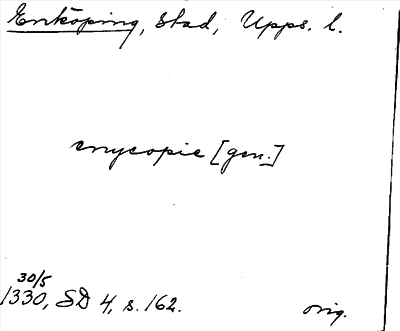 Enköping, Stad, Upps. l.
enycopie [gen.]
30/5
1330, SD 4, s. 162.
orig.